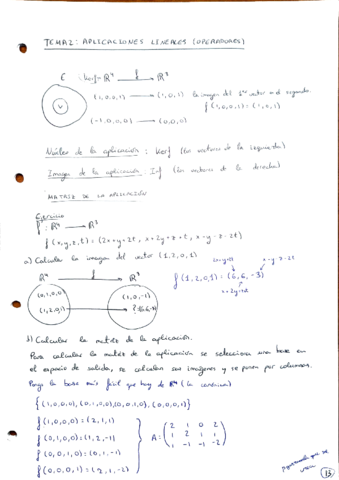 TEMA 2: APLICACIONES LINEALES (OPERADORES)
E : Kerf = R⁴ f→ R³
V
(1,0,0,1) → (1,0,1) la imagen del 1er vector es el segundo
f(1,0,0,1) = (1,0,1)
(-1,0,0,0) → (0,0,0)
Núcleo de la aplicación : Kerf (los vectores de la izquierda)
Imagen de la aplicación : Imf (los vectores de la derecha)
MATRIZ DE LA APLICACIÓN
Ejercicio
f: R⁴ → R³
f(x,y,z,t) = (2x+y+2t, x+2y+z+t, x-y-z-2t)
a) Calcular la imagen del vector (1,2,0,1)
R⁴ f→ R³
x-y-z-2t
f(1,2,0,1) = (6,6,-3)
x+2y+z+t
(0,1,0,0)
(1,0,-1)
(1,2,0,1)
b) Calcular la matriz de la aplicación.
Para calcular la matriz de la aplicación se selecciona una base en
el espacio de salida, se calculan sus imágenes y se ponen por columnas.
Pongo la base más fácil que hay de R⁴ (la canónica)
{(1,0,0,0),(0,1,0,0),(0,0,1,0),(0,0,0,1)}
f(1,0,0,0) = (2,1,1)
f(0,1,0,0) = (1,2,-1)
f(0,0,1,0) = (0,1,-1)
f(0,0,0,1) = (2,1,-2)
A: ( 2 1 0 2
1 2 1 1
1 -1 -1 -2 )
13